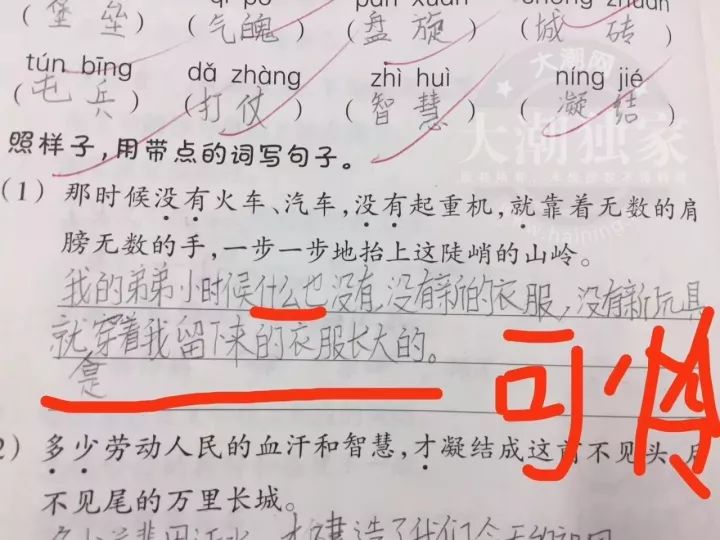 qì pò pán xuán chéng zhuān
(堡垒) (气魄) (盘旋) (城砖)
tún bīng dǎ zhàng zhì huì níng jié
(屯兵) (打仗) (智慧) (凝结)
大潮网
大潮独家
照样子,用带点的词写句子。
(1) 那时候没有火车、汽车,没有起重机,就靠着无数的肩
膀无数的手,一步一步地抬上这陡峭的山岭。
我的弟弟小时候什么也没有,没有新的衣服,没有新玩具
就穿着我留下来的衣服长大的。
是
可怜
2) 多少劳动人民的血汗和智慧,才凝结成这前不见头,后
不见尾的万里长城。